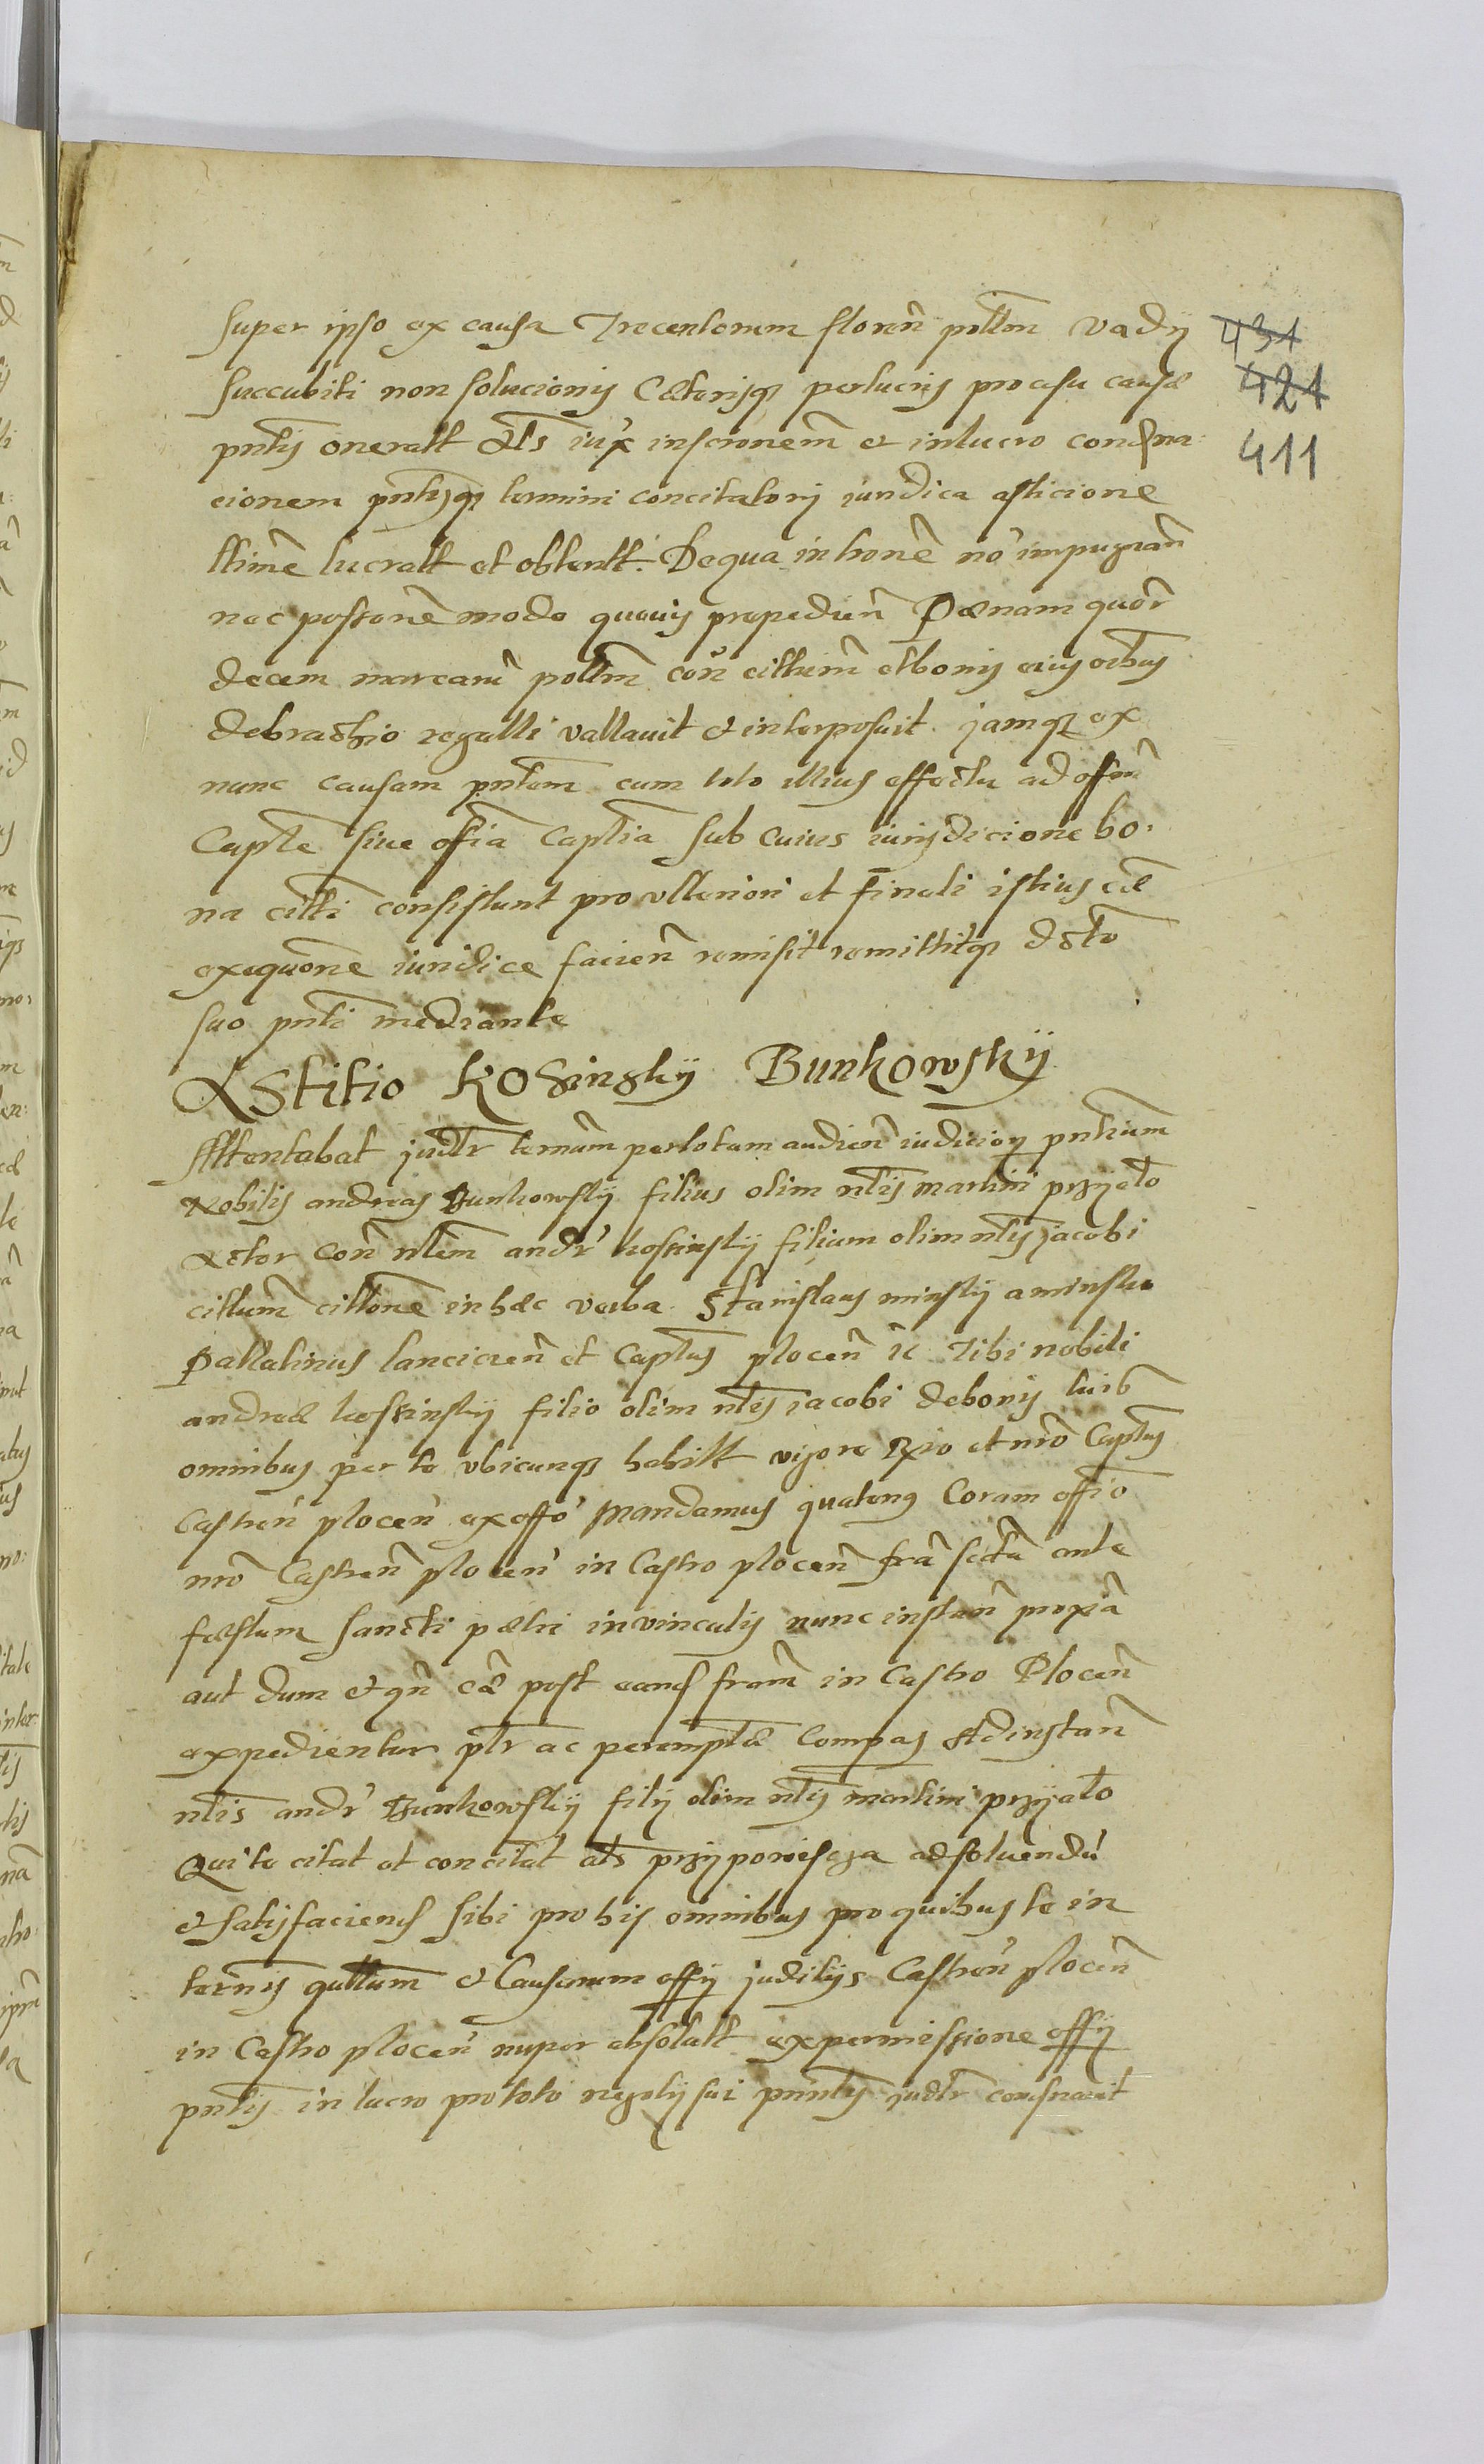 super ipso ex causa Trecentorum floren̄ pēttm vadÿ
succubiti non solucionis Cæterisq̨ perlucris pro casu causæ
pn̄tis oneratt &ts̄ iux̄ inscrionem̄ et inlucro condēna:
cionem pn̄tisq̨ termini concitatorÿ iuridica asticione
ttimē lucratt et obtentt. De qua inhonē nō impugnan̄
nec possonē modo quouis propediun̄ Pœnam quōr̄
decem marcarū pollm̄ con̄ cittum̄ et bonis eius oībus
debrachio regalli vallauit & interposuit. jamq̨ ex
nunc causam pn̄tem cum toto illius effectu ad offm̄
Capte siue offia Captia sub cuius iurisdicione bo:
na citti consistunt pro vlteriori et finali istius cæ
exequōne iuridice facien̄ remisit remittitq̨ dcto
suo pn̄ti mediante
Astitio Kosinskÿ Bunkowskÿ
Attentabat judtr̄ ternūm per totam audien̄ iudicior̨ pn̄tium
Nobilis andreas Bunkowskÿ filius olim nt̄is martini przÿeto
Actor con̄ nt̄em andr̄ kossinskÿ filium olim nt̄is jacobi
cittum̄ cittonē in hæc verba. Stanislaus minskÿ a minsko
Pallatinus lancicien̄ et Captus plocen̄ ic Tibi nobili
andreæ kossinskÿ filio olim nt̄is iacobi debonis tuis
omnibus per te vbicunq̨ habitt vigore Rio et nrō Captus
Castren̄ plocen̄ ex offō Mandamus quatenq̨ Coram offio
nrō Castren̄ plocen̄ in Castro plocen̄ frā sextā ante
fæstum sancti pætri in vinculis nunc instan̄ propiā
aut dum & qn̄ cæ post eand fram̄ in Castro Plocen̄
expedientur ptr ac peremptæ Compas Ad instan̄
nt̄is andr̄ Bunkowskÿ filÿ olim nt̄is martini przÿeto
Qui te citat et concitat ats przÿpowiscza ad soluendū
& satisfaciend sibi pro his omnibus pro quibus te in
ternis quttum & Causarum offÿ juditÿs Castren̄ plocen̄
in Castro plocen̄ nuper absolutt ex permissione offÿ
pn̄tis in lucro pro toto negotÿ sui pn̄ntis judtr̄ condēnauit
431
421
411